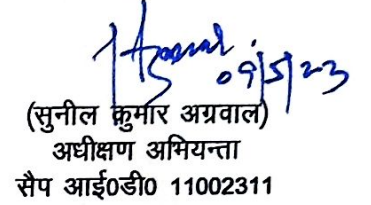 09/5/23
(सुनील कुमार अग्रवाल)
अधीक्षण अभियन्ता
सैप आई0डी0 11002311